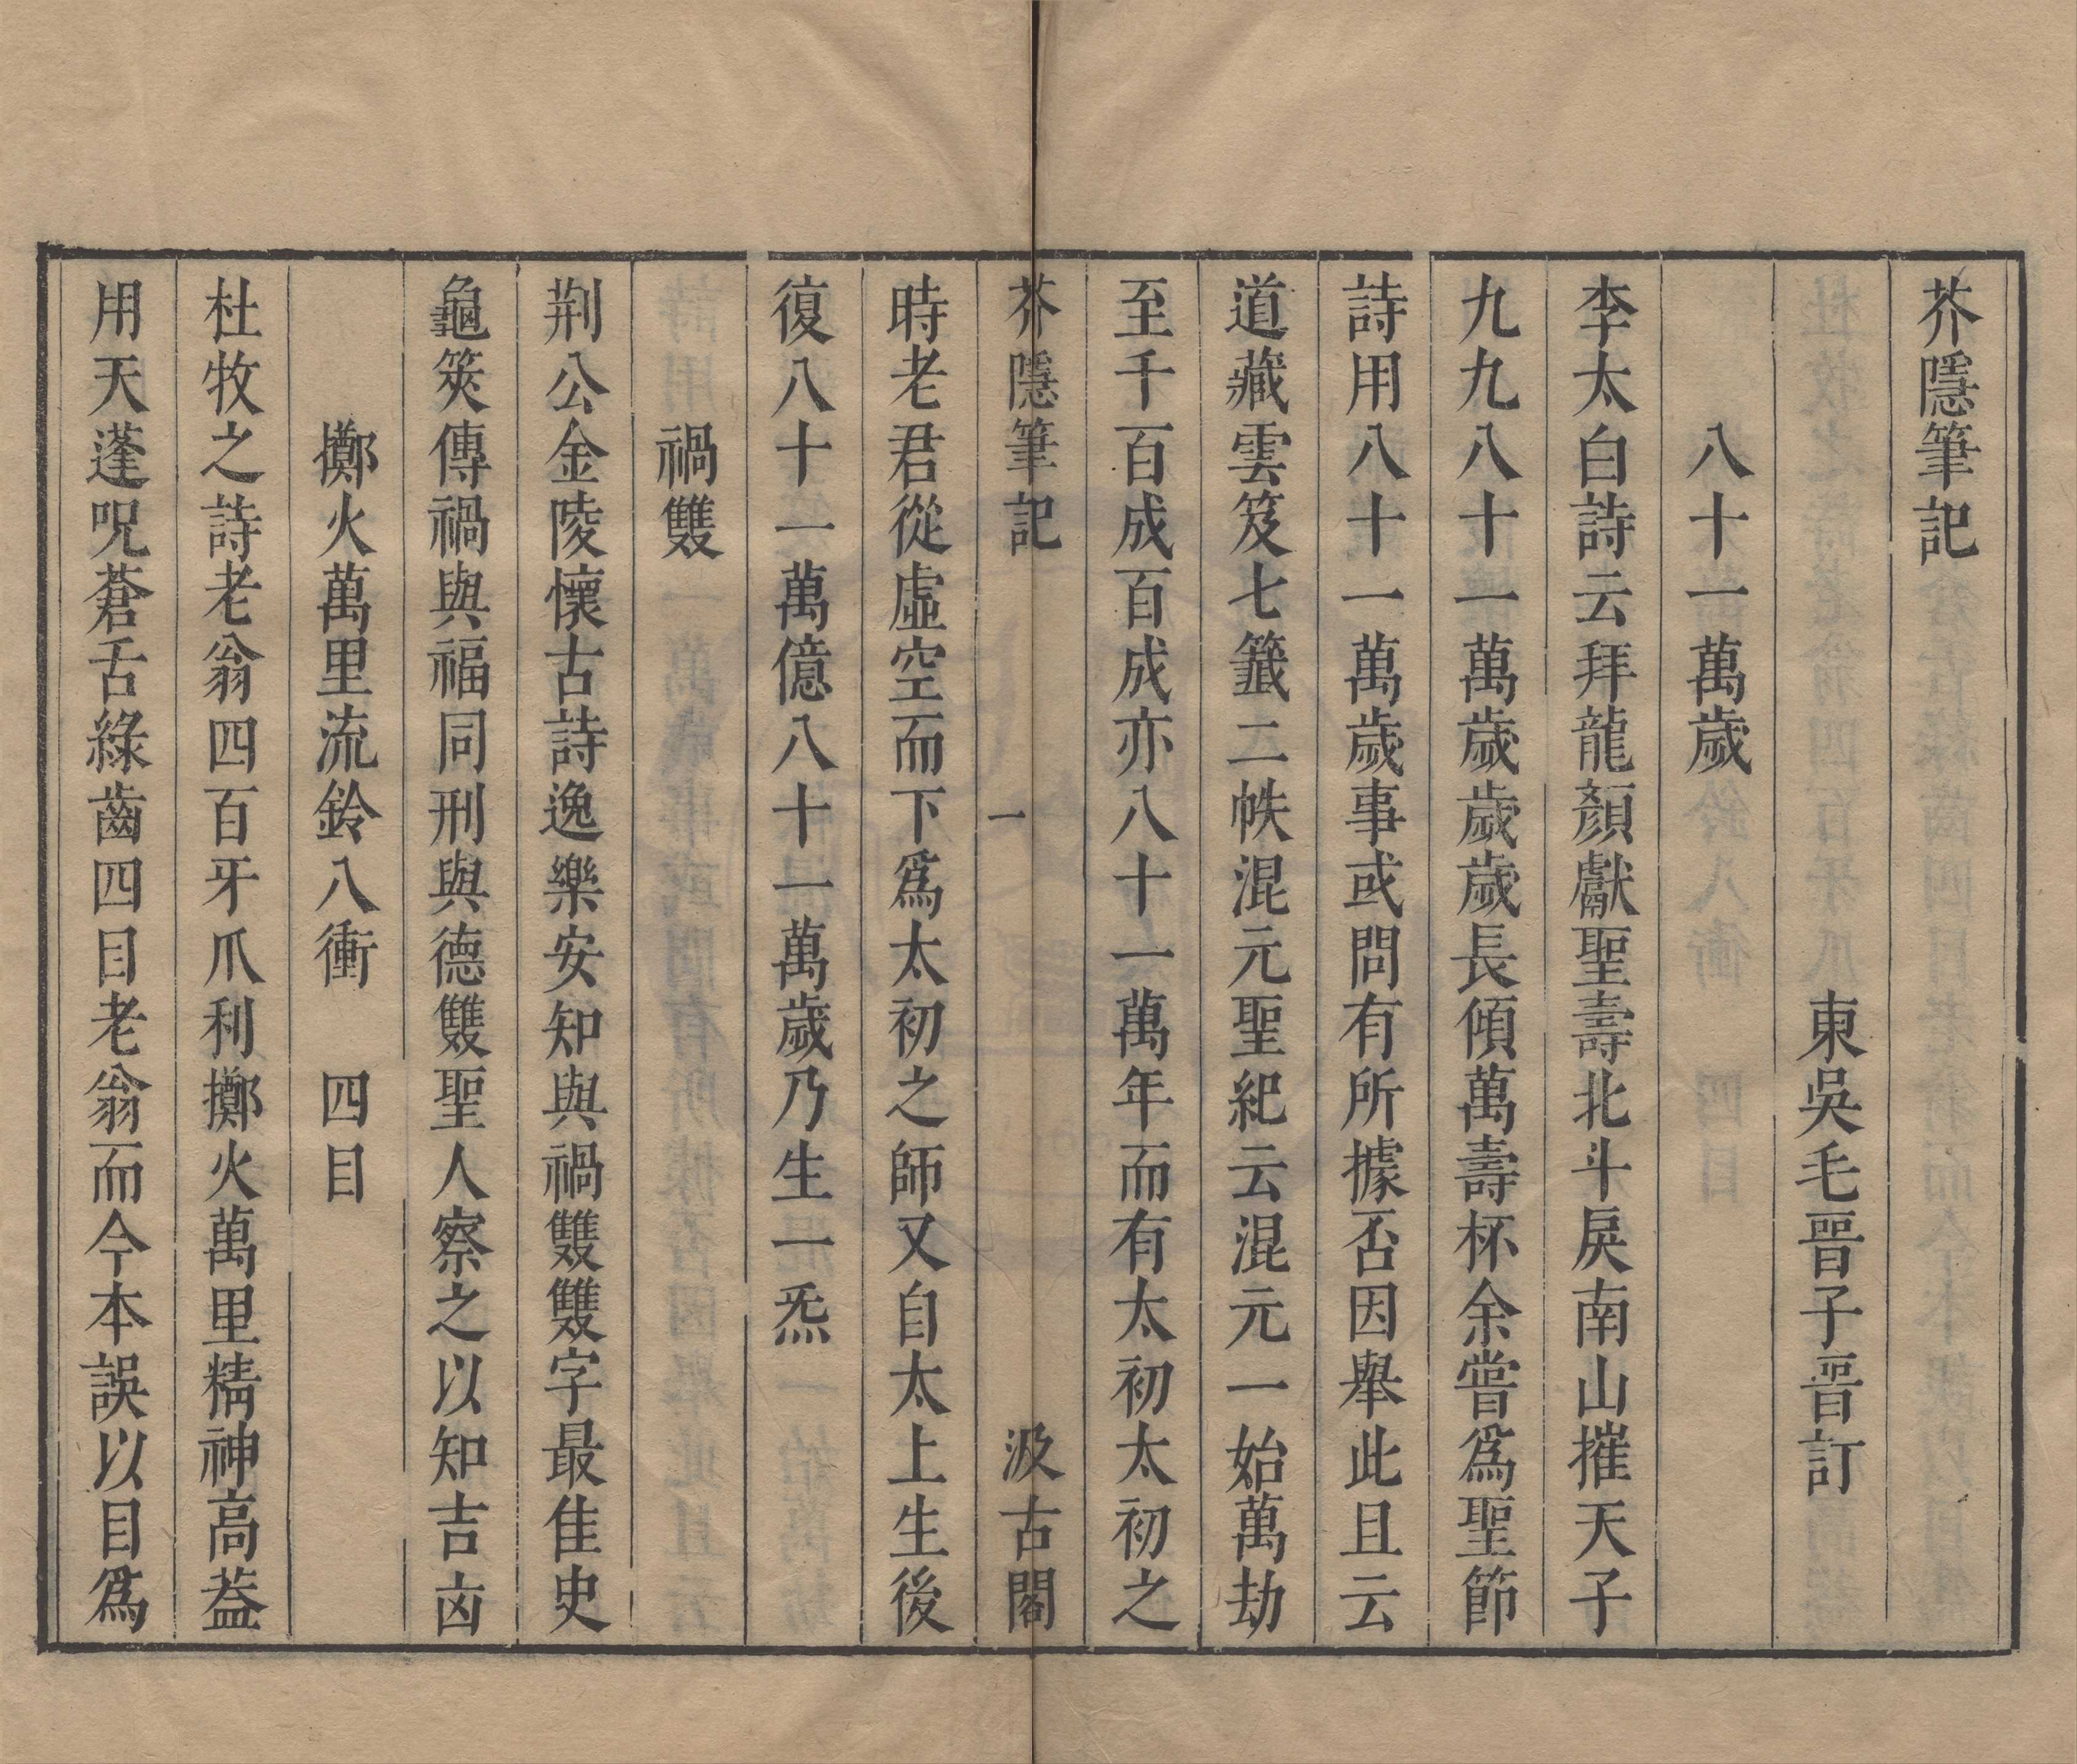 芥隱筆記
東吳毛晉子晉訂
八十一萬歲
李太白詩云拜龍顏獻聖壽北斗戾南山摧天子
九九八十一萬歲歲歲長傾萬壽杯余嘗爲聖節
詩用八十一萬歲事或問有所據否因舉此且云
道藏雲笈七籖二帙混元聖紀云混元一始萬劫
至千百成百成亦八十一萬年而有太初太初之
芥隱筆記 一 汲古閣
時老君從虛空而下爲太初之師又自太上生後
復八十一萬億八十一萬歲乃生一炁
禍雙
荆公金陵懷古詩逸樂安知與禍雙雙字最佳史
龜筴傳禍與福同刑與德雙聖人察之以知吉凶
擲火萬里流鈴八衝 四目
杜牧之詩老翁四百牙爪利擲火萬里精神高葢
用天蓬呪蒼舌綠齒四目老翁而今本誤以目爲